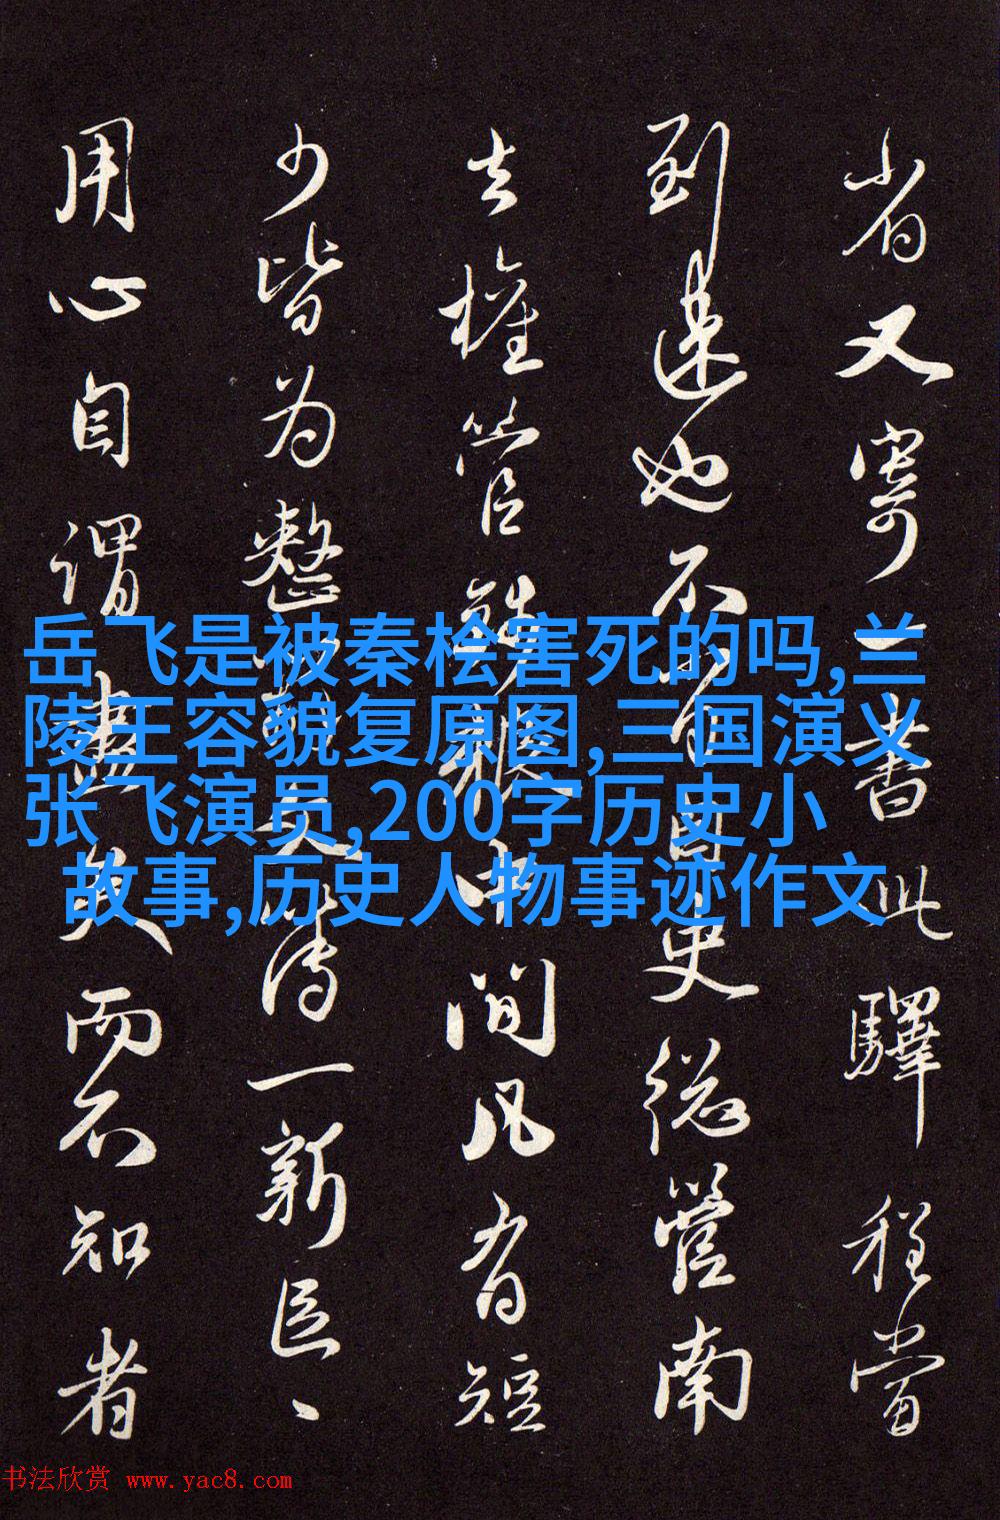 省又寄一书此驛程當
到速也不
史總管南
去權管
中间凡有短
少皆为整
一新臣、
用心自谓
而不知者
岳飞是被秦桧害死的吗,兰
陵王容貌复原图,三国演义
张飞演员,200字历史小
故事,历史人物事迹作文
书法欣赏 www.yac8.com